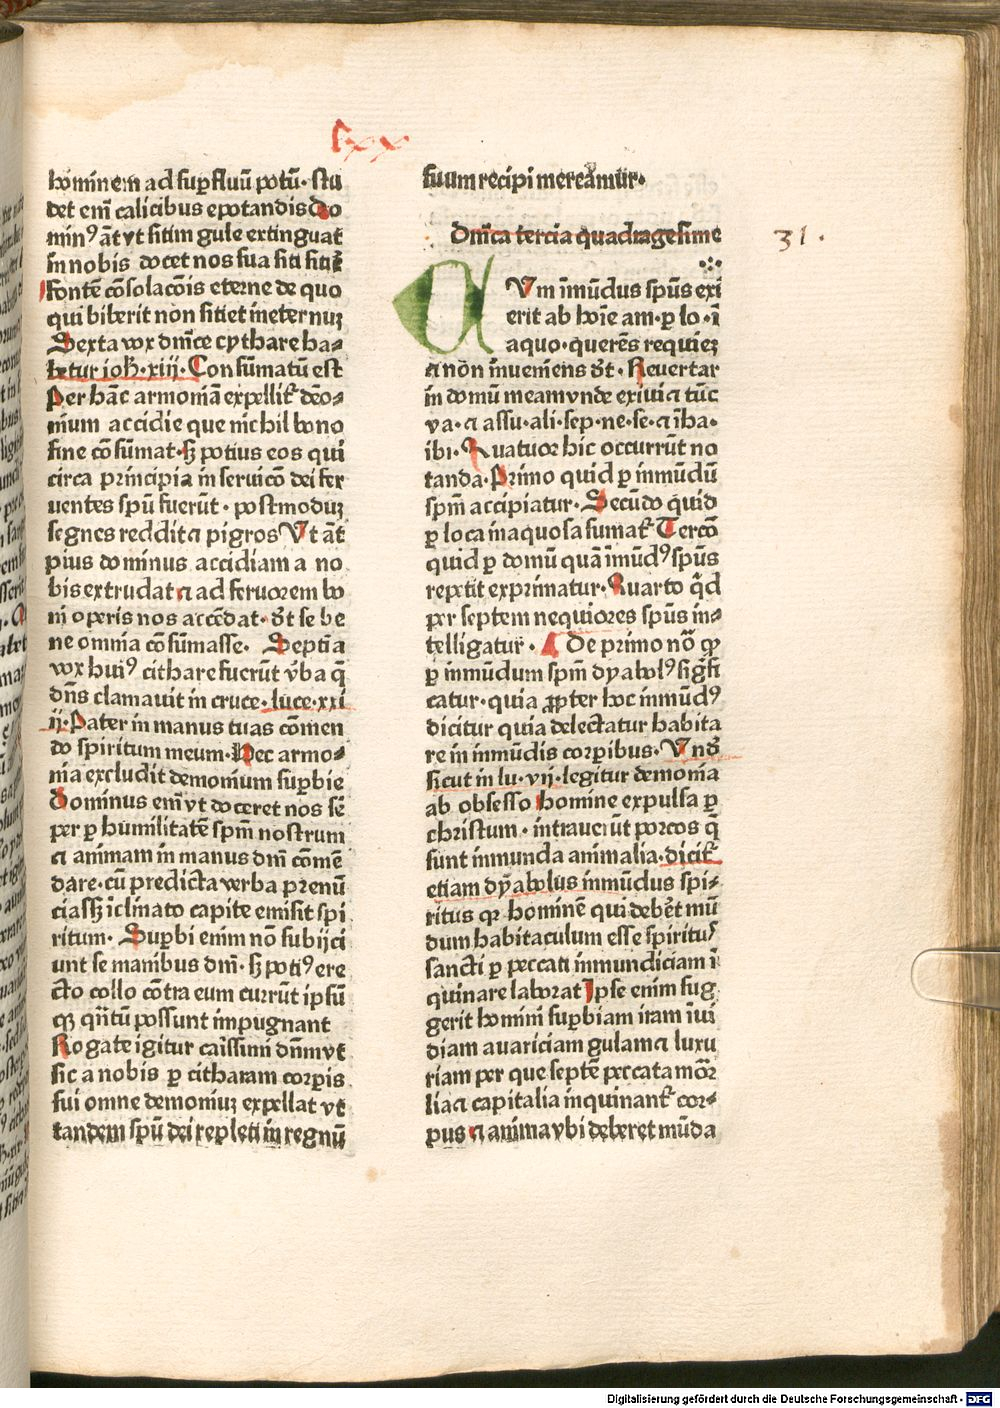 lxx
hominem ad suꝑfluū potū· stu
det em̄ calicibus epotandis Do
minꝰ āt vt sitim gule extinguat
in nobis docet nos sua siti sitiꝛe
fontē cōsolacōis eterne de quo
qui biberit non sitiet ineternuꝫ
Sexta vox dnīce cythare ha-
betur ioh̄·xiij· Consumatū est
Per hāc armoniā expellit᷑ dēo-
nium accidie que nichil bono
fine cōsumat·sꝫ potius eos qui
circa principia in seruicō dei fer
uentes spū fuerūt · postmoduꝫ
segnes reddit ⁊ pigros Vt āt
pius dominus accidiam a no
bis extrudat ⁊ ad feruorem bo
ni operis nos accēdat· dr̄t se be
ne omnia cōsūmasse· Septīa
vox huiꝰ cithare fuerūt v̄ba q̄
dn̄s clamauit in cruce·luce·xxi
ij·Pater in manus tuas cōmen
do spiritum meum·Hec armo-
nia excludit demonium suꝑbie
Dominus em̄ vt doceret nos sē
per ꝑ humilitatē spm̄ nostrum
⁊ animam in manus dnī cōmē
dare·cū predicta verba prenū
ciasꝫ īclinato capite emisit spi
ritum· Suꝑbi enim nō subijci
unt se manibus dnī·sꝫ potiꝰ ere
cto collo cōtra eum currūt ipsū
qꝫ qn̄tū possunt impugnant
Rogate igitur caīssimi dn̄m vt
sic a nobis ꝑ citharam corꝑis
sui omne demoniuꝫ expellat vt
tandem spū dei repleti in regnū
suum recipi mereamur·
Dnīca tercia quadragesime
31.
Vm īmūdus spūs exi
erit ab hoīe am·ꝑ lo·ī
aquo·querēs requieꝫ
⁊ nōn inueniens d̄t·Reuertar
in domū meam vnde exiui ⁊ tūc
va·⁊ assu·ali·sep·ne·se·⁊ īha-
ibi·Quatuor hic occurrūt no
tanda·Primo quid ꝑ inmūdū
spm̄ accipiatur·Secūdo quid
ꝑ loca inaquosa sumat᷑ Tercō
quid ꝑ domū quā īmūdꝰ spūs
repetit exprimatur·Quarto q̄d
per septem nequiores spūs in-
telligatur · De primo nō ꝙ
ꝑ inmūdum spm̄ dyabolꝰ sigīfi
catur·quia ꝓpter hoc inmūdꝰ
dicitur quia delectatur habita
re in inmūdis corꝑibus·Vnd̄
sicut in lu·vij·legitur demonia
ab obsesso homine expulsa ꝑ
christum·intrauerūt porcos q̄
sunt inmunda animalia·dicit᷑
etiam dyabolus inmūdus spi-
ritus qꝛ hominē qui debēt mū
dum habitaculum esse spiritus
sancti ꝑ peccati inmundiciam ī
quinare laborat Ipse enim sug
gerit homini suꝑbiam iram īui
diam auariciam gulam ⁊ luxu
riam per que septē peccata mōr
lia ⁊ capitalia inquinant᷑ cor-
pus ⁊ anima vbi deberet mūda
Digitalisierung gefördert durch die Deutsche Forschungsgemeinschaft - DFG